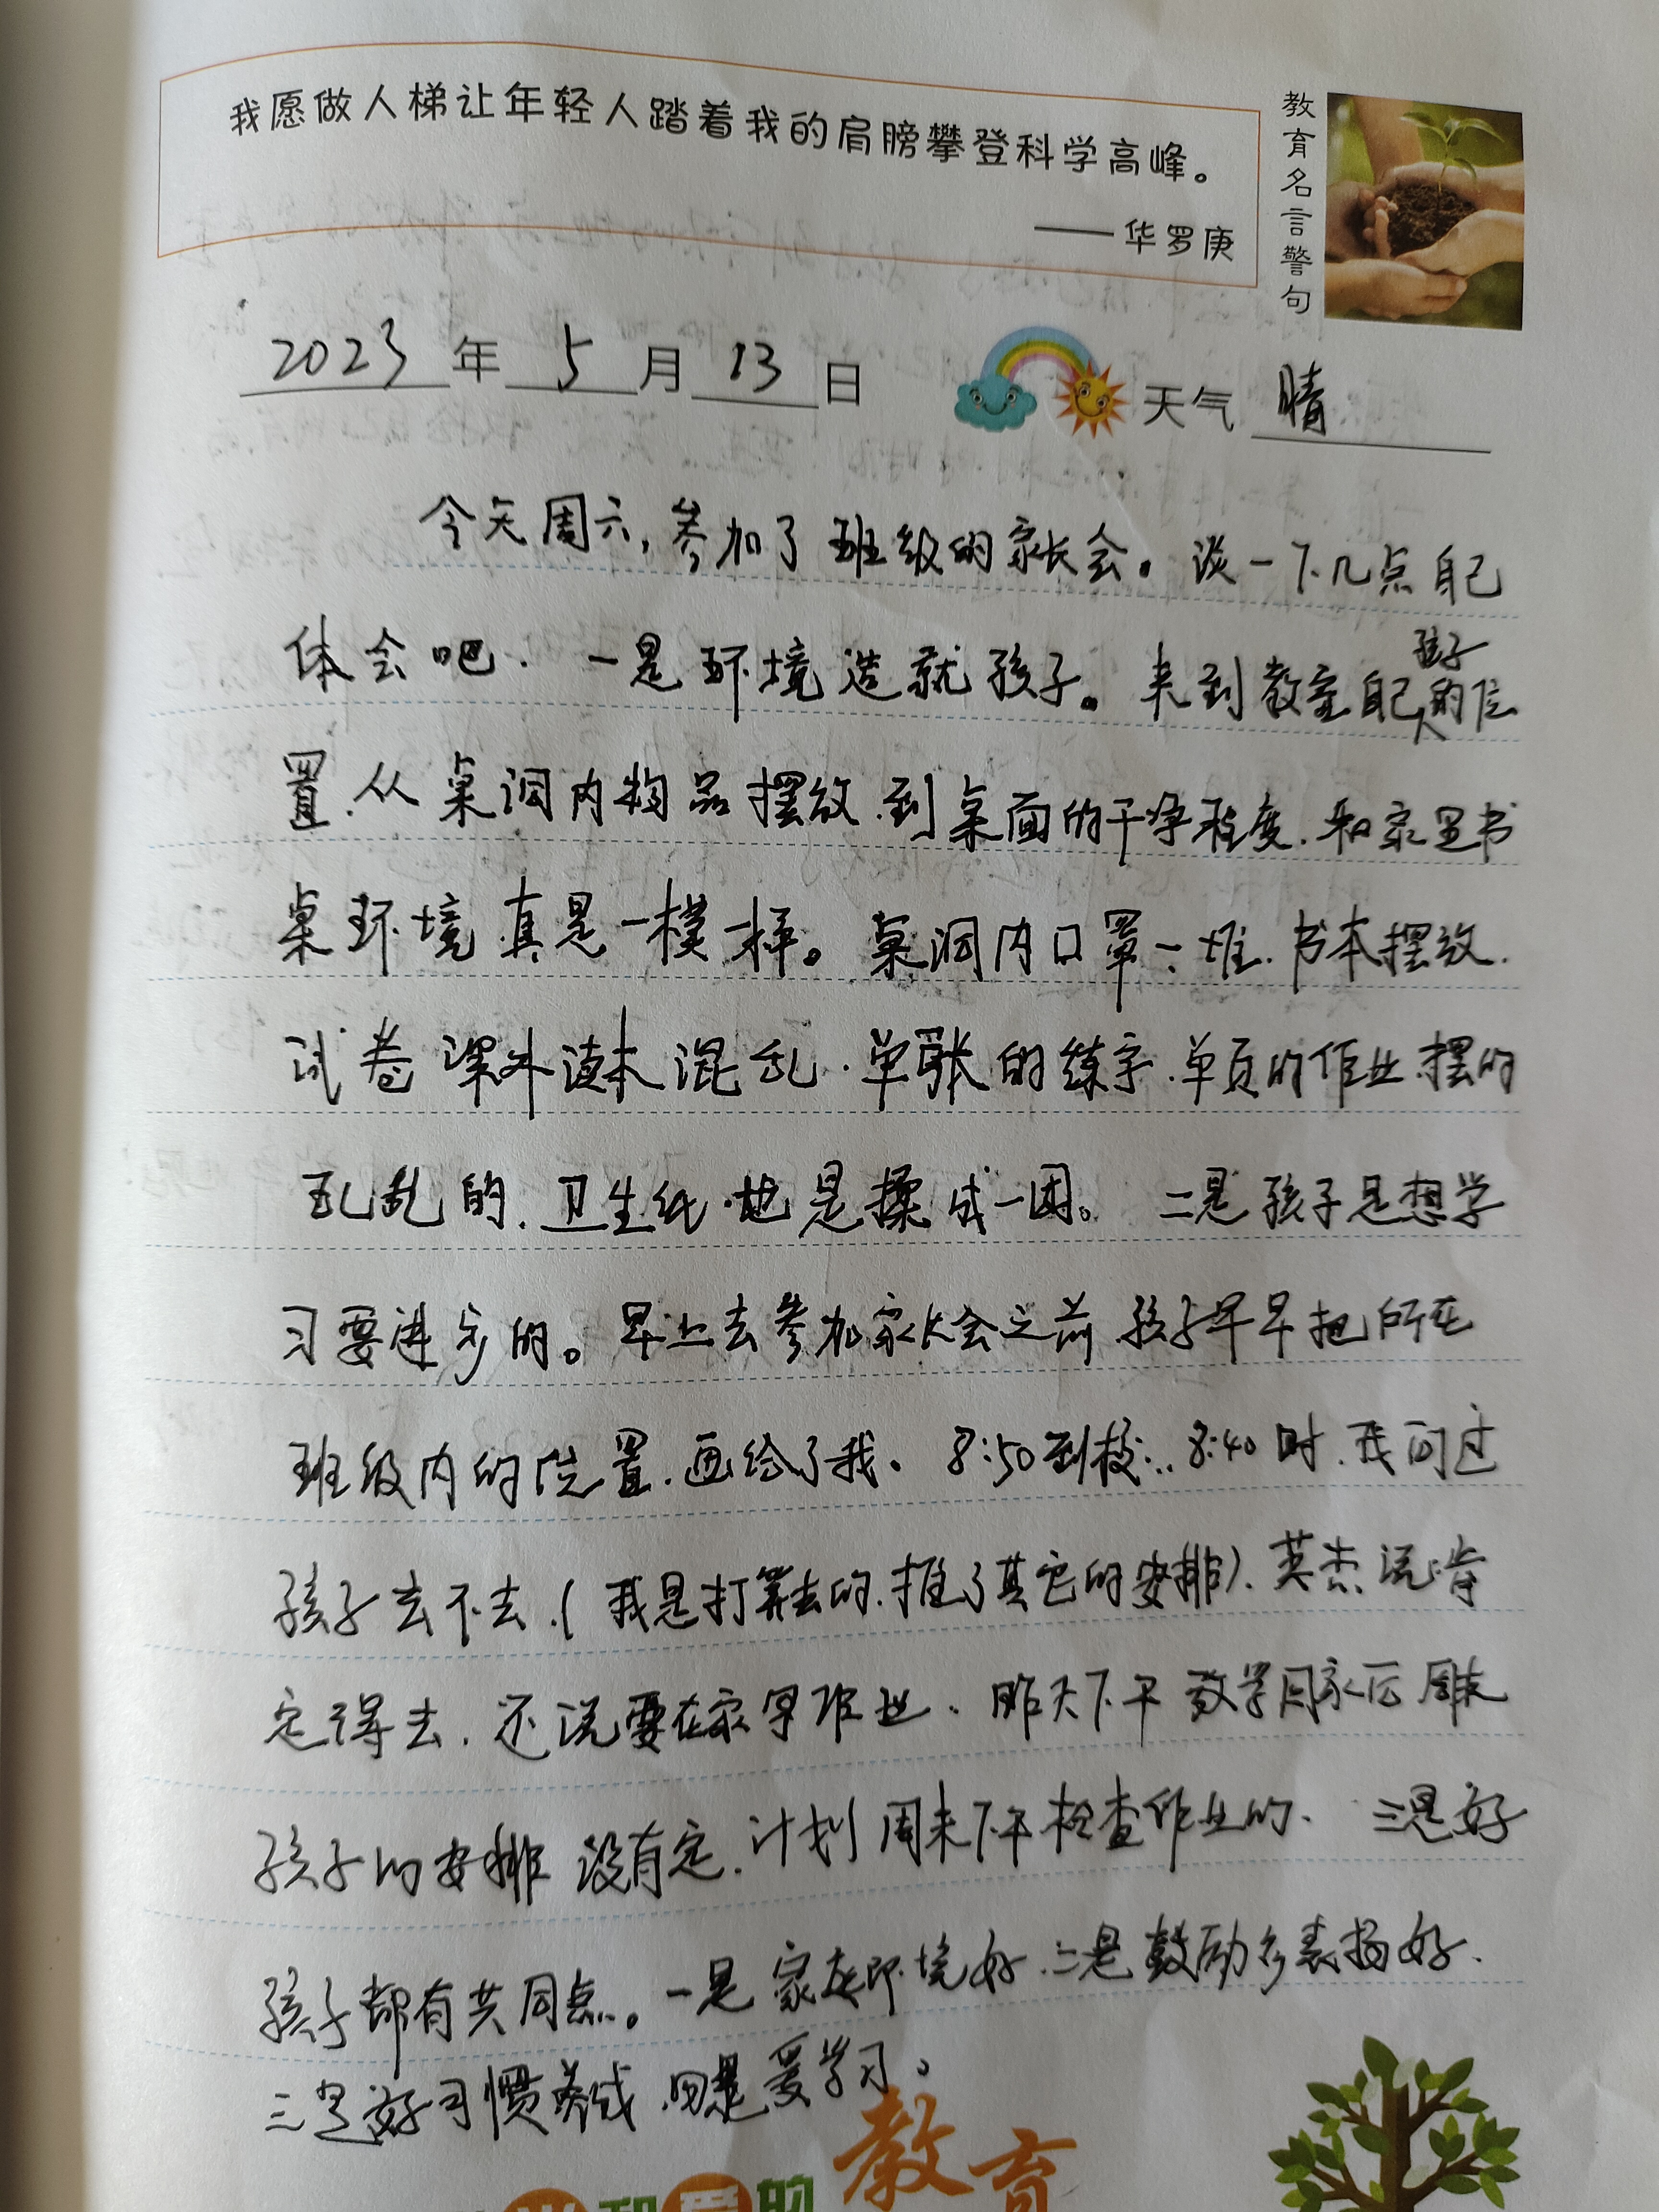 我愿做人梯让年轻人踏着我的肩膀攀登科学高峰。
——华罗庚
教育名言警句
2023年5月13日 天气 晴
今天周六,参加了班级的家长会。谈一下几点自己
体会吧. 一是环境造就孩子。来到教室自己孩子的位
置.从桌洞内物品摆放.到桌面的干净程度.和家里书
桌环境真是一模一样。桌洞内口罩一堆.书本摆放.
试卷课外读本混乱.单张的练字.单页的作业.摆的
乱乱的.卫生纸.也是揉成一团。 二是孩子是想学
习要进步的。早上去参加家长会之前孩子早早把所在
班级内的位置.画给了我。8:50到校... 8:40时.我问过
孩子去不去.(我是打算去的.推了其它的安排).英杰说肯
定得去.还说要在家写作业.昨天下午放学回家后周末
孩子的安排没有定.计划周末下午检查作业的. 三是好
孩子都有共同点。一是家庭环境好.二是鼓励多表扬好.
三是好习惯养成.四是爱学习。
和爱的教育